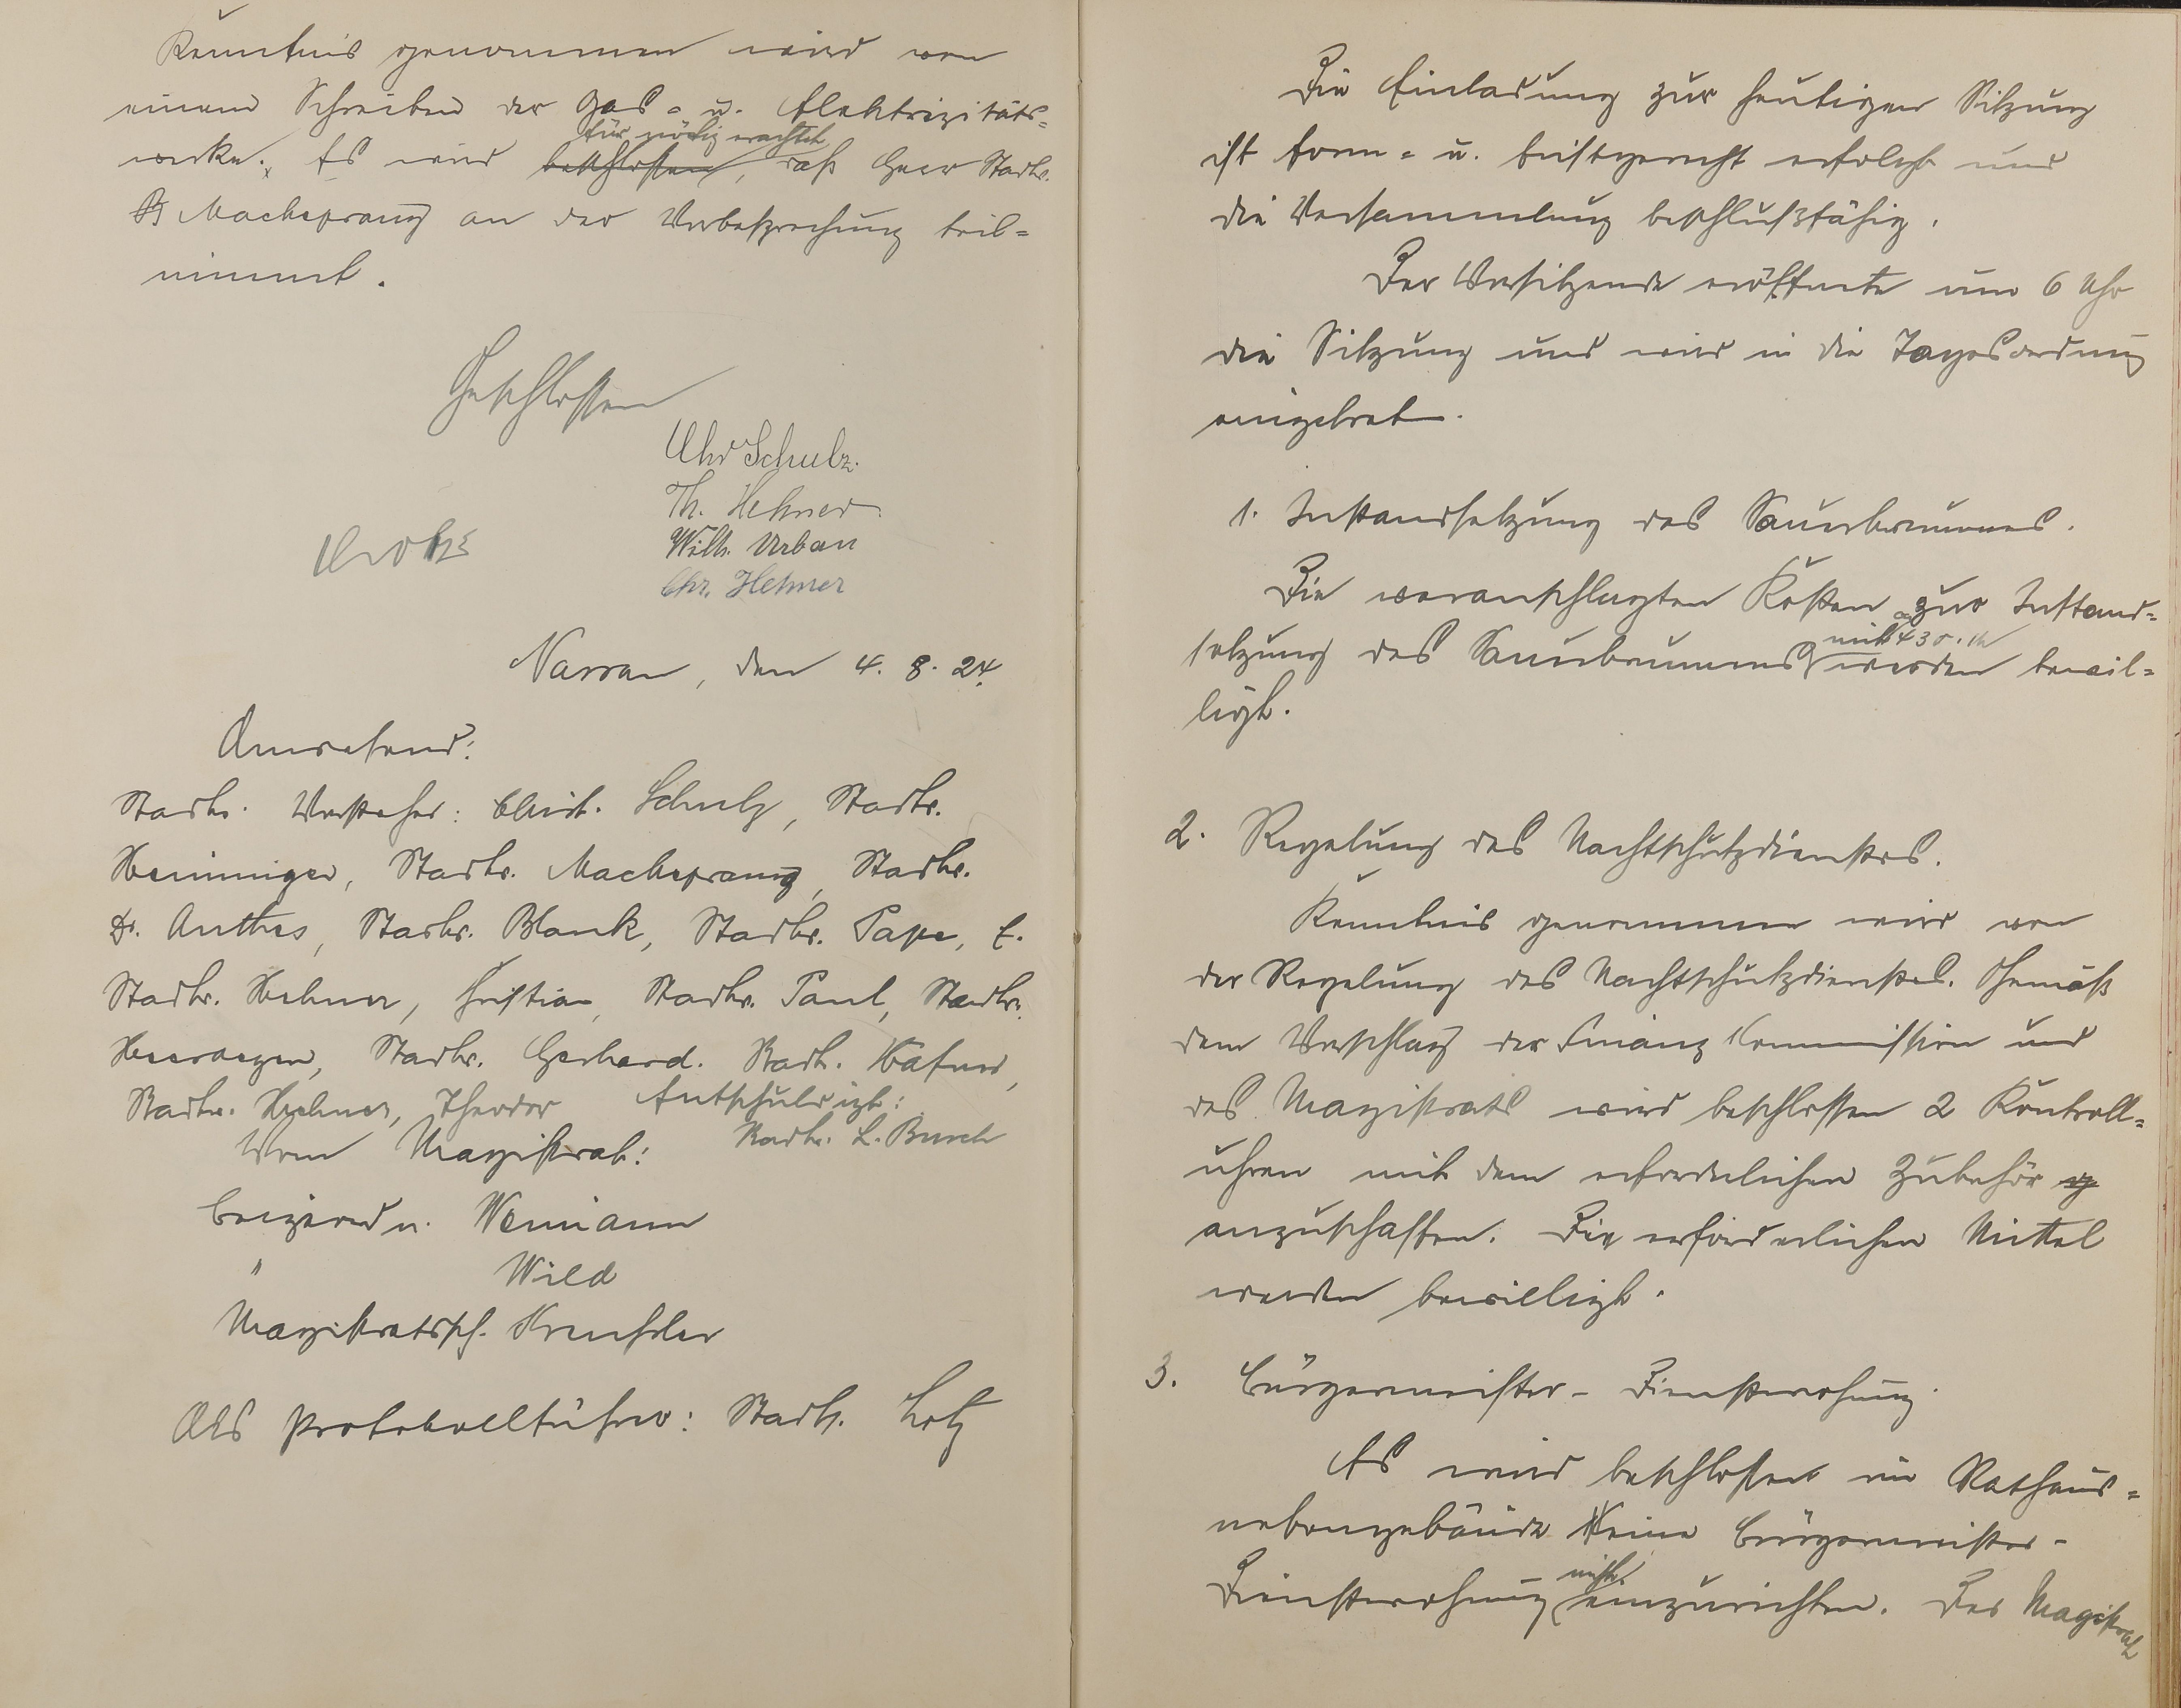 Kenntnis genommen wird von
einem Schreiben der Gas- u. Elektrizitäts-
für nötig erachtet
werke. Es wird beschlossen, daß Herr Stadtv.
Mackeprang an der Vorbesprechung teil-
nimmt.
Geschlossen
Chr Schulz.
Th. Hehner
Wilh. Urban
Chr. Hehner
Nassau, den 4. 8. 24.
Anwesend:
Stadtv. Vorsteher: Christ. Schulz, Stadtv.
Stadtv. Mackeprang, Stadtv.
Dr. Anthes, Stadtv. Blank, Stadtv. Pape, E.
Stadtv. Hehner, Christian, Stadtv. Paul, Stadtv.
Stadtv. Gerhard. Stadtv.
Stadtv. Hehner, Theodor Entschuldigt:
Stadtv. L. Busch
Vom Magistrat:
Beigeordn.
" Wild
Magistratssch.
Als Protokollführer: Stadts. Lotz
Die Einladung zur heutigen Sitzung
ist form- u. fristgerecht erfolgt und
die Versammlung beschlußfähig.
Der Vorsitzende eröffnete um 6 Uhr
die Sitzung und wird in die Tagesordnung
eingetret.
1. Instandsetzung des Sauerbrunnens.
Die veranschlagten Kosten zur Instand-
mit 430. M
setzung des Sauerbrunnens werden bewil-
ligt.
2. Regelung des Nachtschutzdienstes.
Kenntnis genommen wird von
der Regelung des Nachtschutzdienstes. Gemäß
dem Vorschlag der Finanz Kommission und
des Magistrats wird beschlossen 2 Kontroll-
uhren mit dem erforderlichen Zubehör
anzuschaffen. Die erforderlichen Mittel
werden bewilligt.
3. Bürgermeister-Dienstwohnung.
Es wird beschlossen im Rathaus-
nebengebäude keine Bürgermeister-
Dienstwohnung einzurichten. Der Magistrat